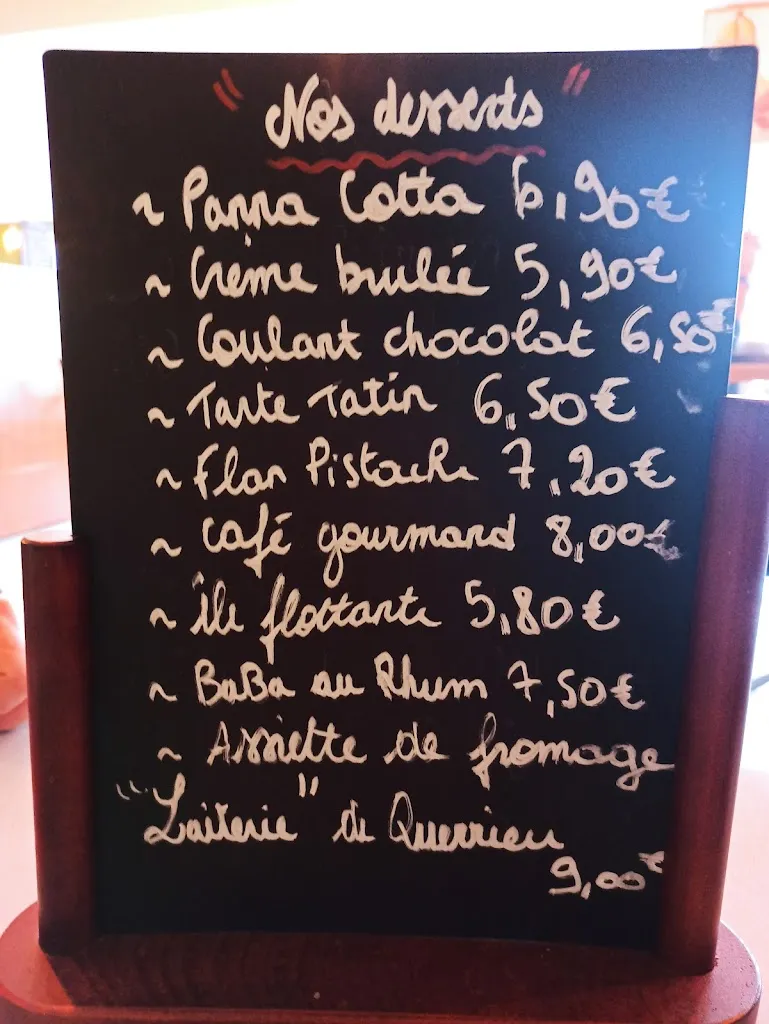 " Nos desserts "
~ Panna Cotta 6,90€
~ Crème brulée 5,90€
~ Coulant chocolat 6,50€
~ Tarte Tatin 6,50€
~ Flan Pistache 7,20€
~ Café gourmand 8,00€
~ Île flottante 5,80€
~ BaBa au Rhum 7,50€
~ Assiette de fromage
"Laiterie" de Querrieu
9,00€